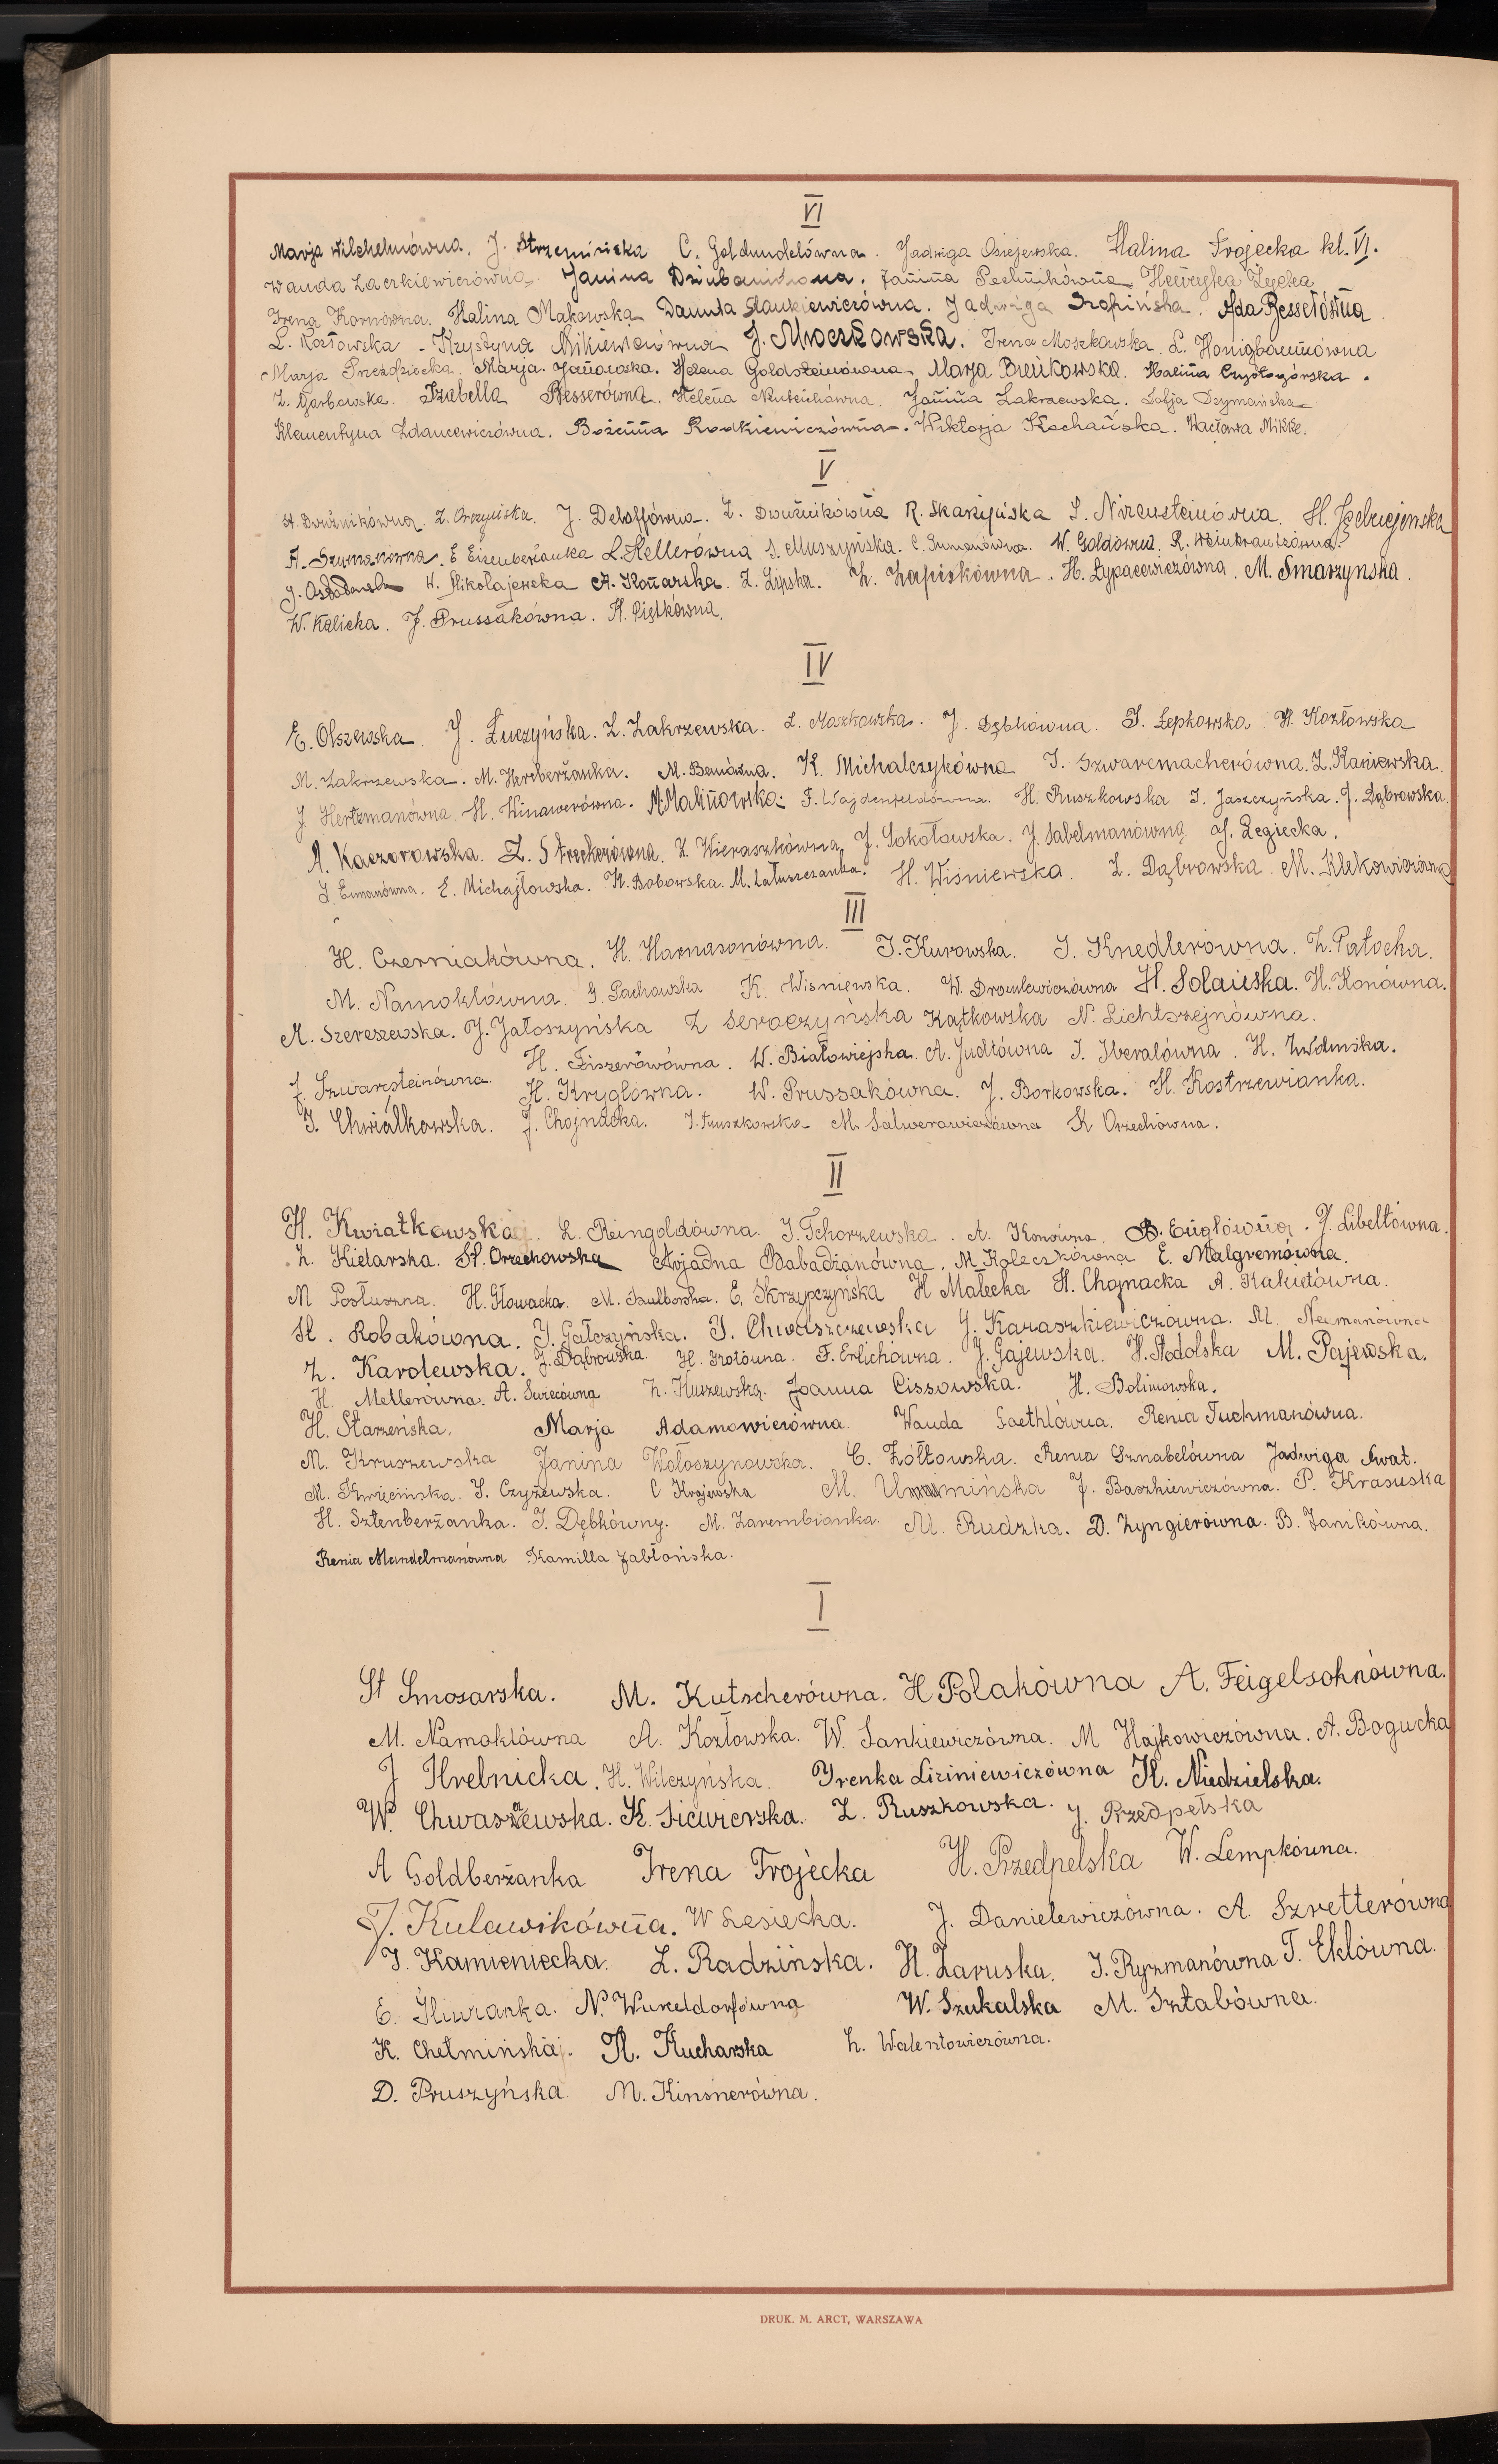 VI
Marja Wilchelmówna. J. Strzemińska C. Goldmudelówna. Jadwiga Osiejewska. Halina Trojecka kl. VI.
Wanda Laczkiewiczówna. Janina Janina Pechnikówna Henryka Zęcka
Irena Kornówna. Halina Makowska Danuta Stankiewiczówna. Jadwiga Szopińska. Ada Besserówna
L. Kozłowska - Krystyna Mikiewiczówna J. Mroczkowska. Irena Moszkowska. L. Honigbaumówna
Marja Przeździecka. Marja Janowska. Helena Goldsteinówna. Marja Bieńkowska. Halina Czystogórska.
Z. Garbowska. Izabella Besserówna. Helena Janina Zakrzewska. Zofja Szymańska
Klementyna Zdancewiczówna. Bożenna Rodkiewiczówna. Wiktorja Kochańska. Wacława Mikke.
V
H. Dwużnikówna. Z. J. Deloffówna. Z. Dwużnikówna R. Skarżyńska S. Nirensteinówna. H.
A. Szumanówna. E Eizenberżanka L. Hellerówna S. Muszyńska. C. Szumanówna. W. Goldówna. R. Weintraubówna.
J. H. Mikołajewska A. Konarska. Z. Lipska. Z. Zapiskówna. H. Łypacewiczówna. M. Smarzynska.
W. Kalicka. J. Prussakówna. H. Piętkówna.
IV
E. Olszewska. J. Łuczyńska. Z. Zakrzewska. L. Moszkowska. J. Dębkówna. J. Łepkowska H. Kozłowska
M. Zakrzewska. M. Hercberżanka. M. K. Michalczykówna I. Szwarcmacherówna. Z. Kaniewska.
J. Hertzmanówna. H. Kinawerówna. M. Malinowska. F. Wajdenfeldówna. H. Ruszkowska I. Jaszczyńska. J. Dąbrowska.
A. Kaczorowska. Z. Streckerówna. Z. Wieraszkówna J. Sokołowska. J. Sabelmanówna J. Legiecka.
J. E. Michajłowska. H. Bobowska. M. Łatuszczanka. H. Wiśniewska. Z. Dąbrowska. M. Klekowiczówna
III
H. Czerniakówna. H. Harnasonówna. I. Kurowska. I. Knedlerówna. Z. Patocha.
M. Namokłówna. G. Pachowska K. Wiśniewska. W. H. Solańska. H. Konówna.
M. Szereszewska. J. Jałoszyńska Z Seroczyńska Kątkowska N. Lichtszejnówna.
J. Szwarcsteinówna. H. Fiszerówówna. W. Białowiejska. A. Judtówna I. Iberalówna. H. Zwolińska.
H. Kryglówna. W. Prussakówna. J. Borkowska. H. Kostrzewianka.
I. Chwiałkowska. J. Chojnacka. I. Truszkowska M. Salwerowiczówna K Orzechówna.
II
H. Kwiatkowska. L. Reingoldówna. I. Tchorzewska. A. Konówna. B. Englówna. J. Libeltówna.
Z. Kielarska. H. Orzechowska Arjadna Babadżanówna. M. Koleczkówna E. Malgremówna.
M Posłuszna. H. Głowacka. M. Szulborska. E. Skrzypczyńska H Małecka H. Chojnacka A. Rakietówna.
H. Robakówna. J. Gałczyńska. I. Chwaszczewska J. Karaszkiewiczówna. M. Neumanówna
Z. Karolewska. J. Dąbrowska. H. Szotówna. F. Erlichówna. J. Gajewska. H. Stodolska M. Pajewska.
H. Metlerówna. A. Świecówna Z. Kuszewska. Joanna Cissowska. H. Bolimowska.
H. Starzeńska. Marja Adamowiczówna. Wanda Renia Tuchmanówna.
M. Kruszewska Janina Wołoszynowska. C. Żółtowska. Renia Sznabelówna Jadwiga Kwat.
M. Kwiecińska. S. Czyżewska. C Krajewska M. J. Baszkiewiczówna. P. Krasuska
H. Sztenberżanka. I. Dębkówny. M. Zarembianka. M. Rudzka. D. Zyngierówna. B. Janikówna.
Renia Mandelmanówna Kamilla Jabłońska.
I
St Smosarska. M. Kutscherówna. H Polakówna A. Feigelsohnówna.
M. Namokłówna A. Kozłowska. W. Sankiewiczówna. M Hajkowiczówna. A. Bogucka
J Hrebnicka. H. Wilczyńska. Irenka Liziniewiczówna H. Niedzielska.
W. Chwaszewska. K. Siewierska. Z. Ruszkowska. J. Przedpełska
A Goldberżanka Irena Trojecka H. Przedpelska W. Lempkówna.
J. Kulawikówna. W Lesiecka. J. Danielewiczówna. A. Szretterówna
I. Kamieniecka. Z. Radzińska. H. Zaruska. I. Ryzmanówna T. Eklówna.
E. Śliwianka. N. Wuxeldorfówna W. Szukalska M. Sztabówna.
K. Chełmińska. H. Kucharska Z. Walentowiczówna.
D. Pruszyńska. M. Kinsnerówna.
DRUK. M. ARCT, WARSZAWA